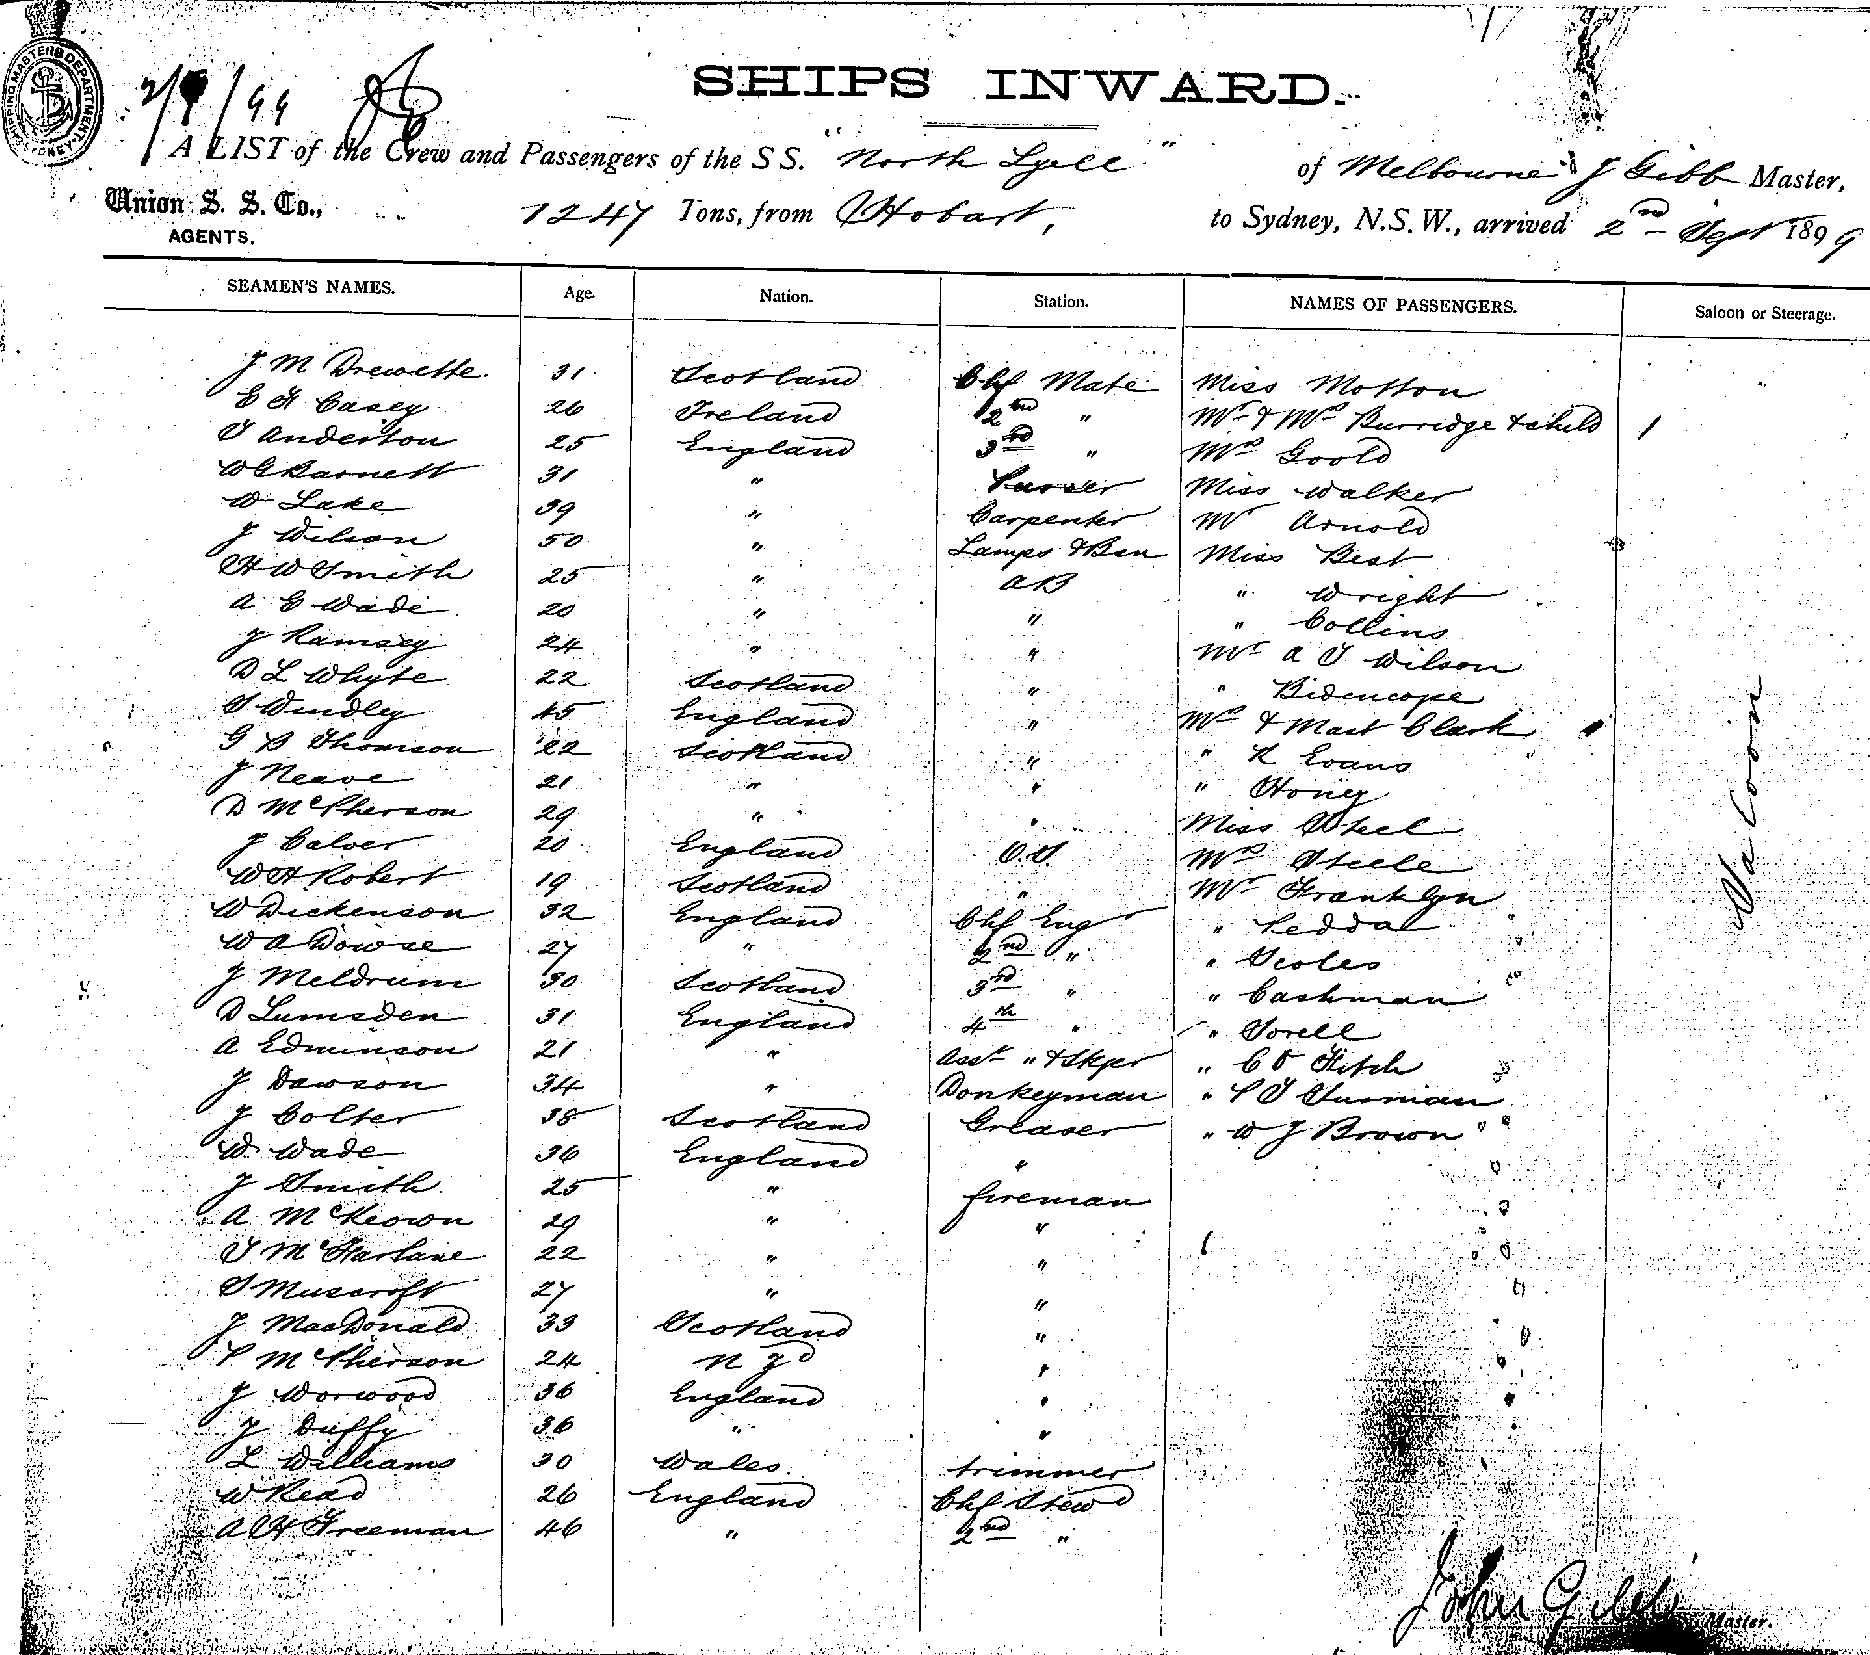 SHIPPING MASTERS DEPARTMENT SYDNEY
2/9/99
SHIPS INWARD.
A LIST of the Crew and Passengers of the SS. "North Lyell" of Melbourne J Gibb Master,
Union S. S. Co., 1247 Tons, from Hobart, to Sydney, N.S.W., arrived 2nd Sept 1899
AGENTS.
SEAMEN'S NAMES. Age. Nation. Station. NAMES OF PASSENGERS. Saloon or Steerage.
J M Drewette 31 Scotland Chf Mate Miss Motton
E H Casey 26 Ireland 2nd " Mr & Mrs Burridge & child 1
T Anderton 25 England 3rd " Mrs Goold
W G Barnett 31 " Purser Miss Walker
W Lake 39 " Carpenter Mr Arnold
J Wilson 50 " Lamps & Bsn Miss Best
H W Smith 25 " AB " Wright
A E Wade 20 " " " Collins
J Ramsey 24 " " Mr A T Wilson
D L Whyte 22 Scotland " " Bidencope
T Dudley 45 England " Mrs & Mast Clark
G B Thomson 22 Scotland " " R Evans
J Neave 21 " " " Honey
D McPherson 29 " " Miss Steel
J Calver 20 England O.S. Mrs Steele
W H Robert 19 Scotland " Mr Franklyn
W Dickenson 32 England Chf Engr " Peddal
W A Dowse 27 " 2nd " " Scoles
J Meldrum 30 Scotland 3rd " " Cashman
D Lumsden 31 England 4th " " Sorell
A Edminson 21 " Asst " & Skpr " C O Fitch
J Dawson 34 " Donkeyman " P T Surman
J Colter 38 Scotland Greaser " W J Brown
W Wade 36 England "
J Smith 25 " fireman
A McKeown 29 " "
T McFarlane 22 " "
S Muscroft 27 " "
J MacDonald 33 Scotland "
P McPherson 24 N Zd "
J Worwood 36 England "
J Duffy 36 " "
L Williams 30 Wales trimmer
W Read 26 England Chf Stewd
A H Freeman 46 " 2nd "
Saloon
John Gibb Master.